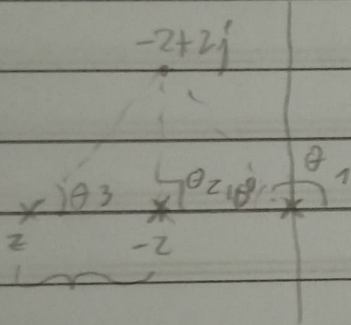 -2+2j
θ3 θ2 θ θ 1
z -2